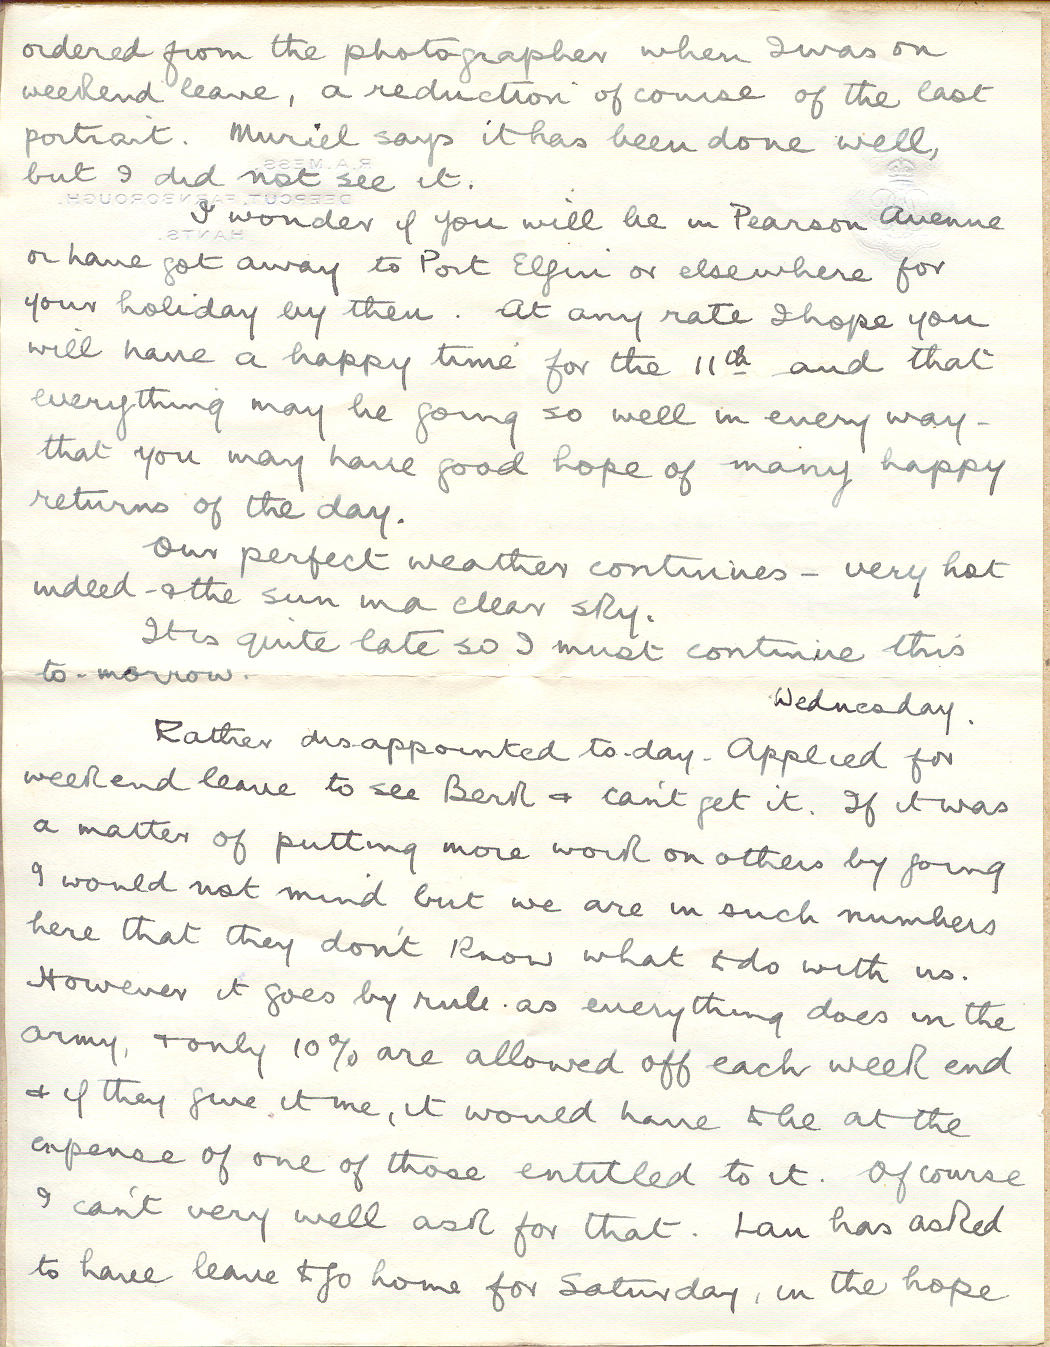 ordered from the photographer when I was on
weekend leave, a reduction of course of the last
portrait. Muriel says it has been done well,
R.A. MESS.
but I did not see it.
DEEPCUT, FARNBOROUGH.
I wonder if you will be in Pearson Avenue
HANTS.
or have got away to Port Elgin or elsewhere for
your holiday by then. At any rate I hope you
will have a happy time for the 11th and that
everything may be going so well in every way -
that you may have good hope of many happy
returns of the day.
Our perfect weather continues - very hot
indeed - & the sun in a clear sky.
It is quite late so I must continue this
to-morrow.
Wednesday.
Rather disappointed to-day. Applied for
weekend leave to see Berk & can't get it. If it was
a matter of putting more work on others by going
I would not mind but we are in such numbers
here that they don't know what to do with us.
However it goes by rule as everything does in the
army, & only 10% are allowed off each week end
& if they give it me, it would have to be at the
expense of one of those entitled to it. Of course
I can't very well ask for that. Ian has asked
to have leave to go home for Saturday, in the hope